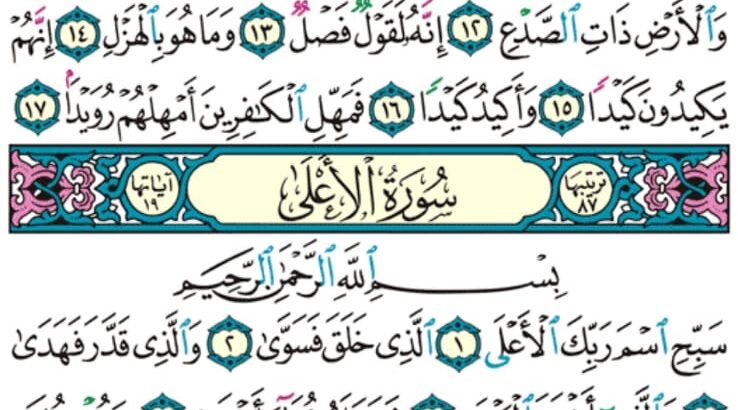 وَٱلْأَرْضِ ذَاتِ ٱلصَّدْعِ ١٢ إِنَّهُۥ لَقَوْلٌ فَصْلٌ ١٣ وَمَا هُوَ بِٱلْهَزْلِ ١٤ إِنَّهُمْ
يَكِيدُونَ كَيْدًا ١٥ وَأَكِيدُ كَيْدًا ١٦ فَمَهِّلِ ٱلْكَٰفِرِينَ أَمْهِلْهُمْ رُوَيْدًۢا ١٧
ترتيبها ٨٧ سُورَةُ ٱلْأَعْلَىٰ آياتها ١٩
بِسْمِ ٱللَّهِ ٱلرَّحْمَٰنِ ٱلرَّحِيمِ
سَبِّحِ ٱسْمَ رَبِّكَ ٱلْأَعْلَى ١ ٱلَّذِى خَلَقَ فَسَوَّىٰ ٢ وَٱلَّذِى قَدَّرَ فَهَدَىٰ